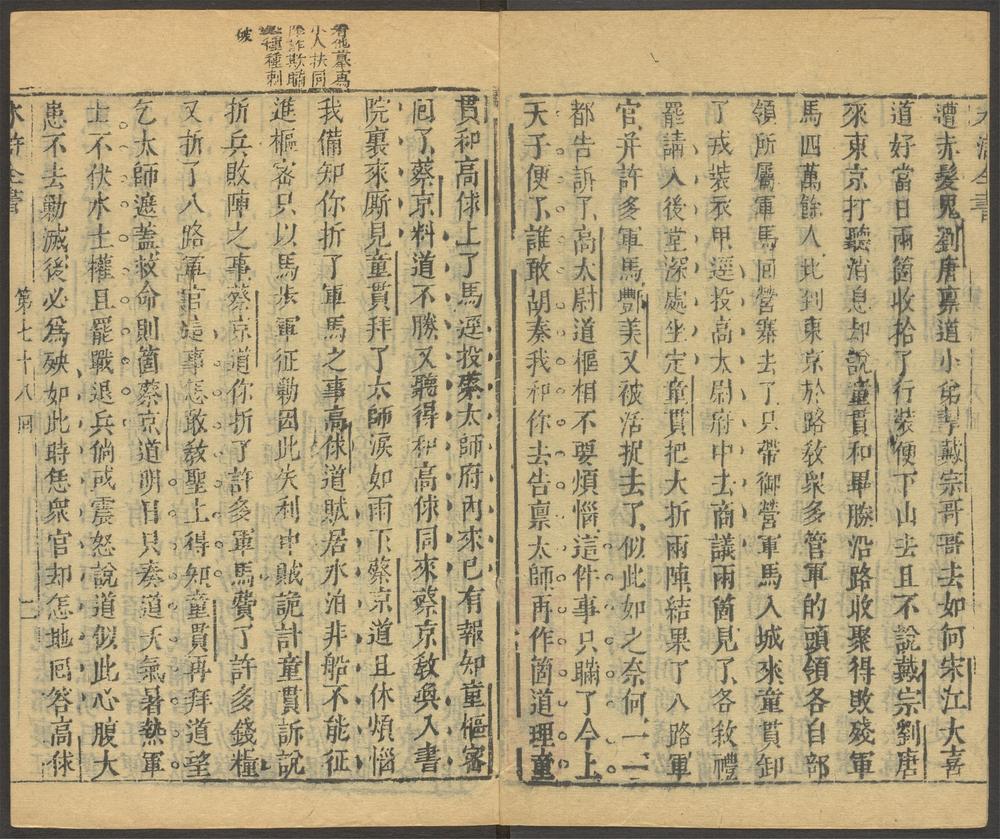 水滸全書
漕赤髮鬼劉唐稟道小弟幫戴宗哥哥去如何宋江大喜
道好當日兩箇收拾了行裝便下山去且不說戴宗劉唐
來東京打聽消息却說童貫和畢勝沿路收聚得敗殘軍
馬四萬餘人比到東京於路教衆多管軍的頭領各自部
領所屬軍馬回營寨去了只帶御營軍馬入城來童貫卸
了戎裝衣甲逕投高太尉府中去商議兩箇見了各敘禮
罷請入後堂深處坐定童貫把大折兩陣結果了八路軍
官并許多軍馬酆美又被活捉去了似此如之奈何一一
都告訴了高太尉道樞相不要煩惱這件事只瞞了今上
天子便了誰敢胡奏我和你去告稟太師再作箇道理童
看他蔡高
小人扶同
詐欺瞞
處種種刺
破
貫和高俅上了馬逕投蔡太師府內來已有報知童樞密
回了蔡京料道不勝又聽得和高俅同來蔡京教喚入書
院裏來厮見童貫拜了太師淚如雨下蔡京道且休煩惱
我備知你折了軍馬之事高俅道賊居水泊非船不能征
進樞密只以馬步軍征勦因此失利中賊詭計童貫訴說
折兵敗陣之事蔡京道你折了許多軍馬費了許多錢糧
又折了八路軍官這事怎敢教聖上得知童貫再拜道望
乞太師遮蓋救命則箇蔡京道明日只奏道天氣暑熱軍
士不伏水土權且罷戰退兵倘或震怒說道似此心腹大
患不去勦滅後必爲殃如此時恁衆官却怎地回答高俅
水滸全書
第七十八回
二